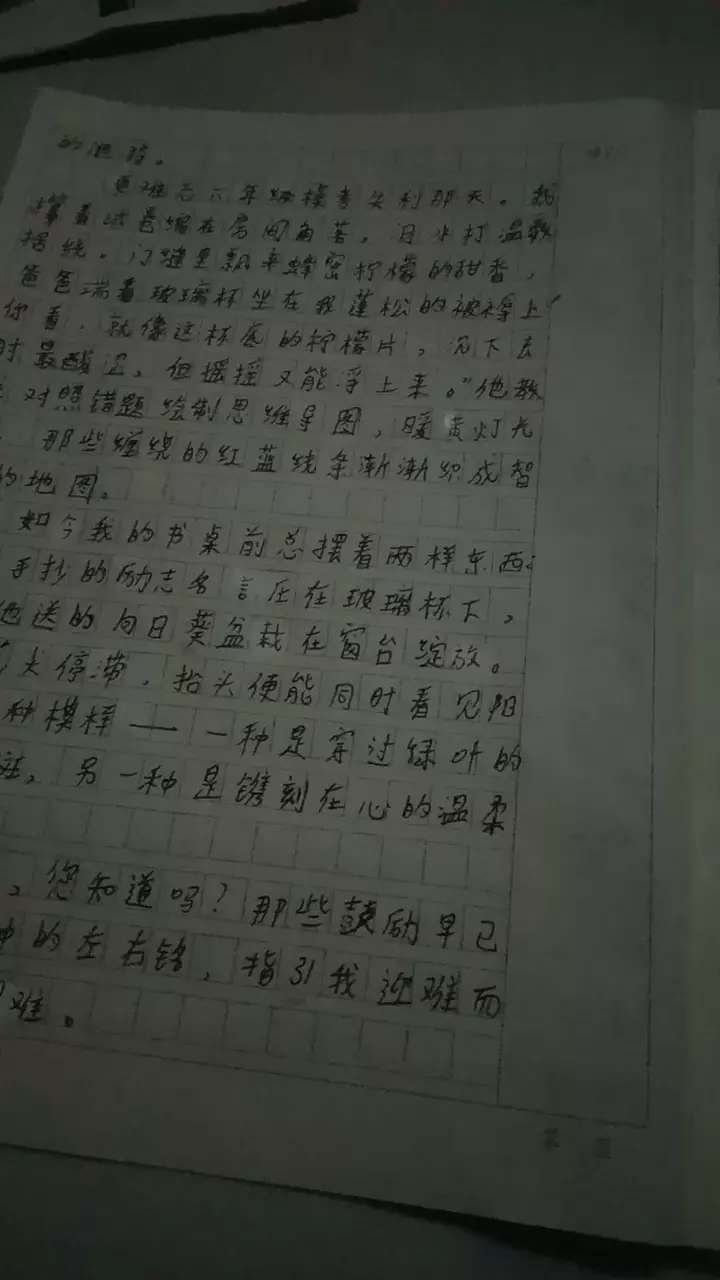 的
更难忘六年级模考失利那天。我
攥着试卷缩在房间角落，
门缝里飘来蜂蜜柠檬的甜香，
爸爸端着玻璃杯坐在我蓬松的被褥上“
你看，就像这杯底的柠檬片，沉下去
时最酸涩，但摇摇又能浮上来。”他教
对照错题绘制思维导图，暖黄灯光
那些缠绕的红蓝线条渐渐织成智
的地图。
如今我的书桌前总摆着两样东西：
手抄的励志名言压在玻璃杯下，
他送的向日葵盆栽在窗台绽放。
停滞，抬头便能同时看见阳
种模样——一种是穿过绿叶的
另一种是镌刻在心的温柔
，您知道吗？那些鼓励早已
的左右铭，指引我迎难而
难。